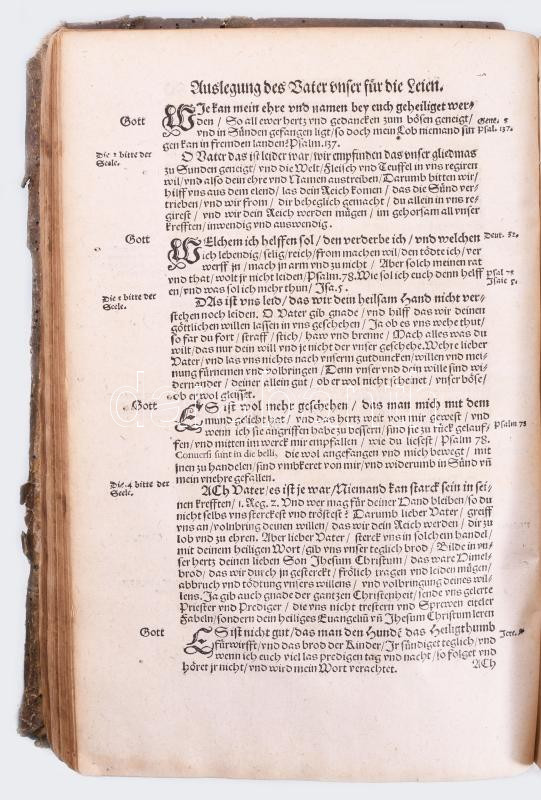 Auslegung des Vater vnser für die Leien.
Gott
WIe kan mein ehre vnd namen bey euch geheiliget wer-
den / So all ewer hertz vnd gedancken zum bösen geneigt /
vnd in Sünden gefangen ligt / so doch mein Lob niemand sin-
gen kan in frembden landen? Psalm. 137.
Psal. 137.
Die 2 bitte der
Seele.
O Vater das ist leider war / wir empfinden das vnser gliedmas
zu Sunden geneigt / vnd die Welt / Fleisch vnd Teuffel in vns regiren
wil / vnd also dein ehre vnd Namen austreiben / Darumb bitten wir /
hilff vns aus dem elend / las dein Reich komen / das die Sünd ver-
trieben / vnd wir from / dir beheglich gemacht / du allein in vns re-
girest / vnd wir dein Reich werden mügen / im gehorsam all vnser
krefften / inwendig vnd auswendig.
Gott
WElchem ich helffen sol / den verderbe ich / vnd welchen
Deut. 32.
ich lebendig / selig / reich / from machen wil / den tödte ich / ver-
werff jn / mach jn arm vnd zu nicht / Aber solch meinen rat
vnd that / wolt jr nicht leiden / Psalm. 78. Wie sol ich euch denn helff
Psal 78
en / vnd was sol ich mehr thun / Isa. 5.
Isaie 5.
Die 3 bitte der
Seele.
DAs ist vns leid / das wir dein heilsam Hand nicht ver-
stehen noch leiden. O Vater gib gnade / vnd hilff das wir deinen
göttlichen willen lassen in vns geschehen / Ja ob es vns wehe thut /
so far du fort / straff / stich / haw vnd brenne / Mach alles was du
wilt / das nur dein will vnd je nicht der vnser geschehe. Wehre lieber
Vater / vnd las vns nichts nach vnserm gutduncken / willen vnd mei-
nung fürnemen vnd volbringen / Denn vnser vnd dein wille sind wi-
dernander / deiner allein gut / ob er wol nicht scheinet / vnser böse /
ob er wol gleisset.
Gott
ES ist wol mehr geschehen / das man mich mit dem
mund geliebt hat / vnd das hertz weit von mir gewest / vnd
wenn ich sie angriffen habe zu bessern / sind sie zu rück gelauf-
Psalm 78
fen / vnd mitten im werck mir empfallen / wie du liesest / Psalm 78.
Conuersi sunt in die belli, die wol angefangen vnd mich bewegt / mit
jnen zu handelen / sind vmbkeret von mir / vnd widerumb in Sünd vñ
mein vnehre gefallen.
Die 4 bitte der
Seele.
ACh Vater / es ist je war / Niemand kan starck sein in sei-
nen krefften / 1. Reg. 2. Vnd wer mag für deiner Hand bleiben / so du
nicht selbs vns sterckest vnd tröstest? Darumb lieber Vater / greiff
vns an / volnbring deinen willen / das wir dein Reich werden / dir zu
lob vnd zu ehren. Aber lieber Vater / sterck vns in solchem handel /
mit deinem heiligen Wort / gib vns vnser teglich brod / Bilde in vn-
ser hertz deinen lieben Son Jhesum Christum / das ware Himel-
brod / das wir durch jn gesterckt / frölich tragen vnd leiden mügen /
abbruch vnd tödtung vnsers willens / vnd volbringung deines wil-
lens. Ja gib auch gnade der gantzen Christenheit / sende vns gelerte
Priester vnd Prediger / die vns nicht trestern vnd Sprewen eiteler
Fabeln / sondern dein heiliges Euangeliũ vñ Jhesum Christum leren
Gott
ES ist nicht gut / das man den Hundẽ das Heiligthumb
fürwirfft / vnd das brod der Kinder / Jr sündiget teglich / vnd
wenn ich euch viel las predigen tag vnd nacht / so folget vnd
höret jr nicht / vnd wird mein Wort verachtet.
ACh